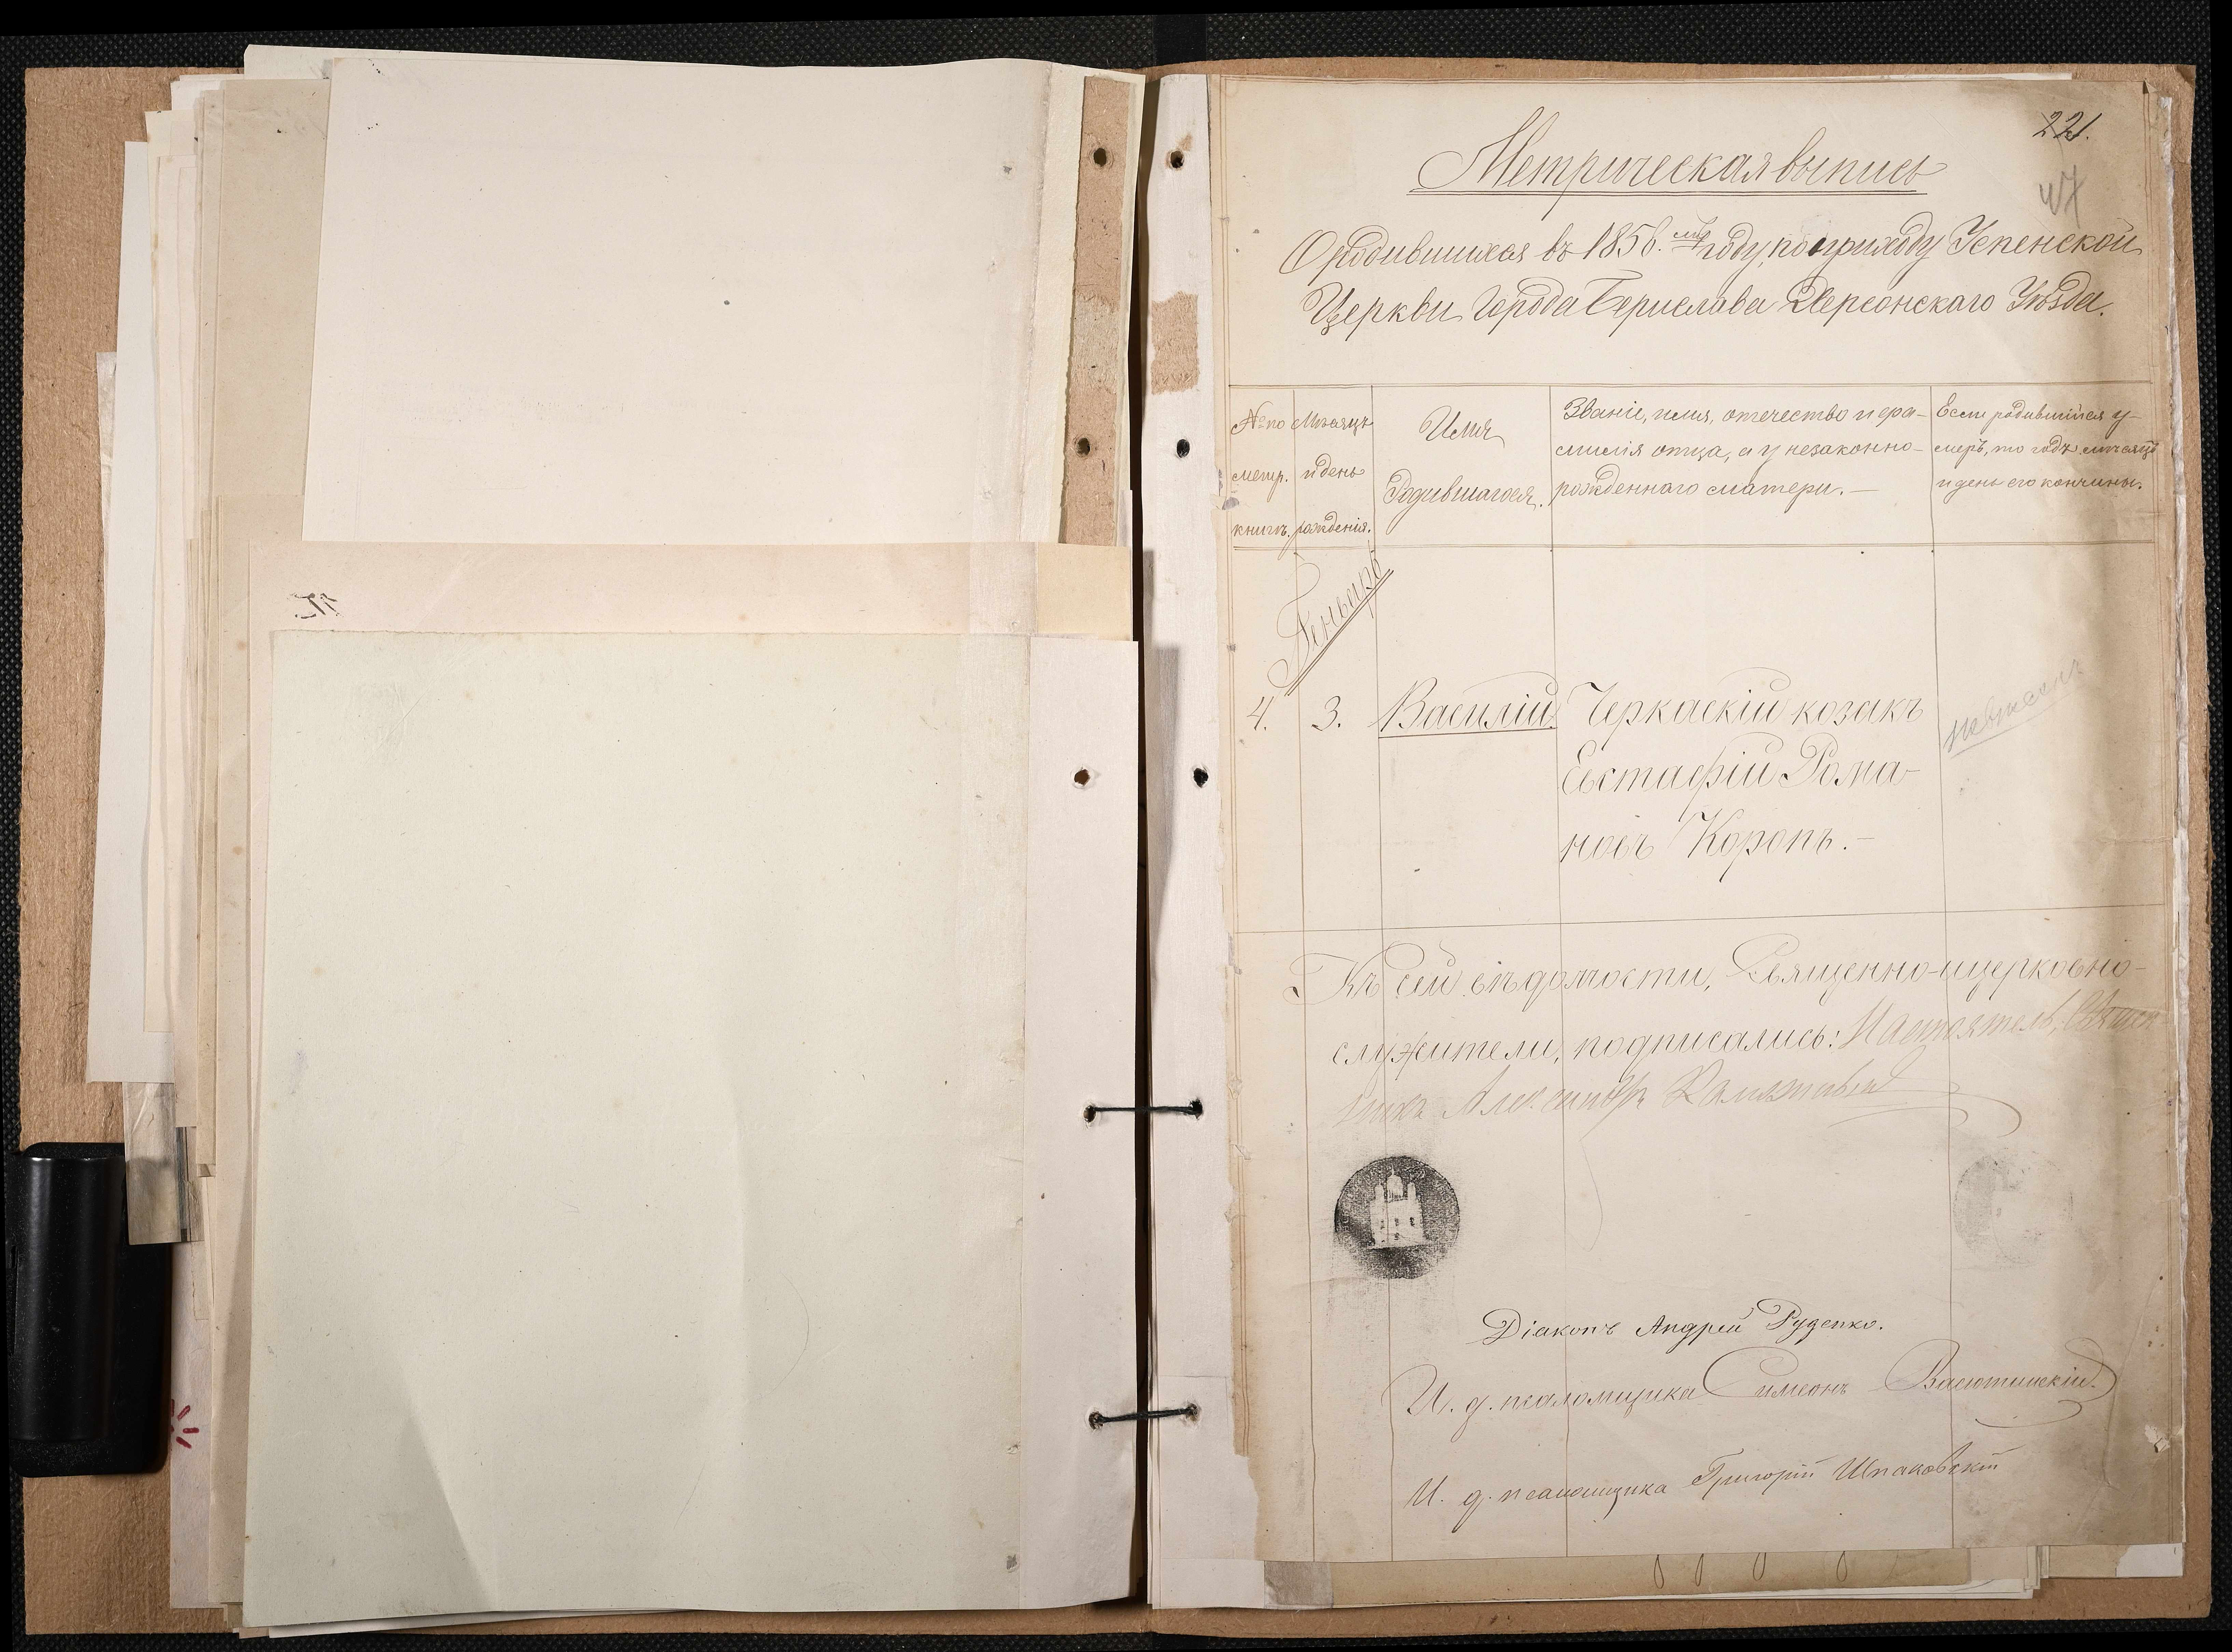 221.
47
Метрическая выпись
О родившихся въ 1856.мъ году, по приходу Успенской
Церкви Города Берислава Херсонскаго Уѣзда.
№ по метр. книгѣ.
Мѣсяцъ и день рожденія.
Имя Родившагося.
Званіе, имя, отечество и фа-
милія отца, а у незаконно-
рожденнаго матери.—
Если родившійся у-
меръ, то годъ мѣсяцъ
и день его кончины.
Генварь
4. 3. Василій. Черкаскій козакъ
Евстафій Рома-
новъ Коропъ.—
Къ сей вѣдомости, Священно-церковно-
служители, подписались: Настоятель, Священ
никъ Александръ
Діаконъ Андрей Руденко.
И. д. псаломщика Симеонъ Васютинскій.
И. д. псаломщика Григорій Шпаковскій